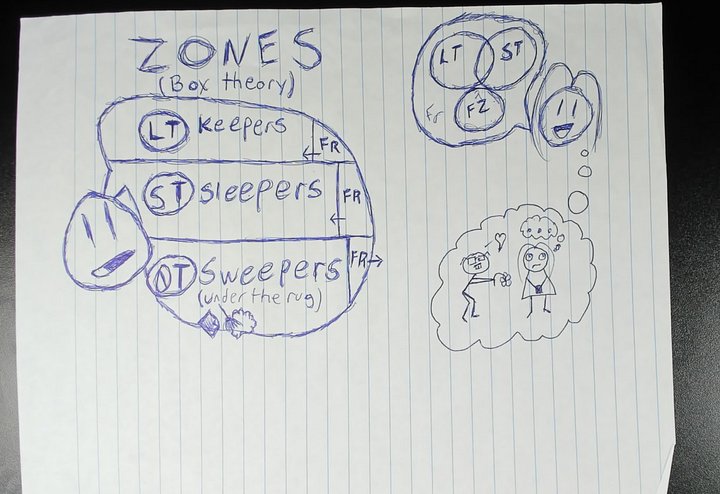 ZONES
(Box theory)
LT Keepers FR
ST sleepers FR
NT Sweepers FR
(under the rug)
LT ST
Fr FZ